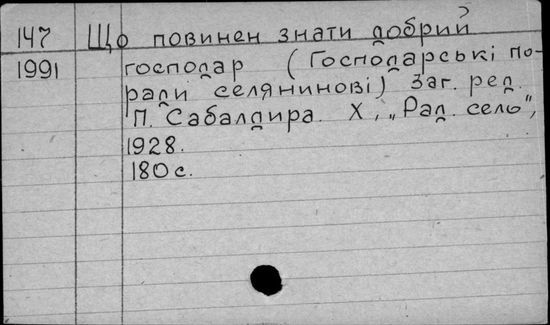 147 Що повинен знати добрий
1991 господар (Господарські по-
ради селянинові) Заг. ред.
П. Сабалдира. Х, „Рад. село",
1928.
180 с.